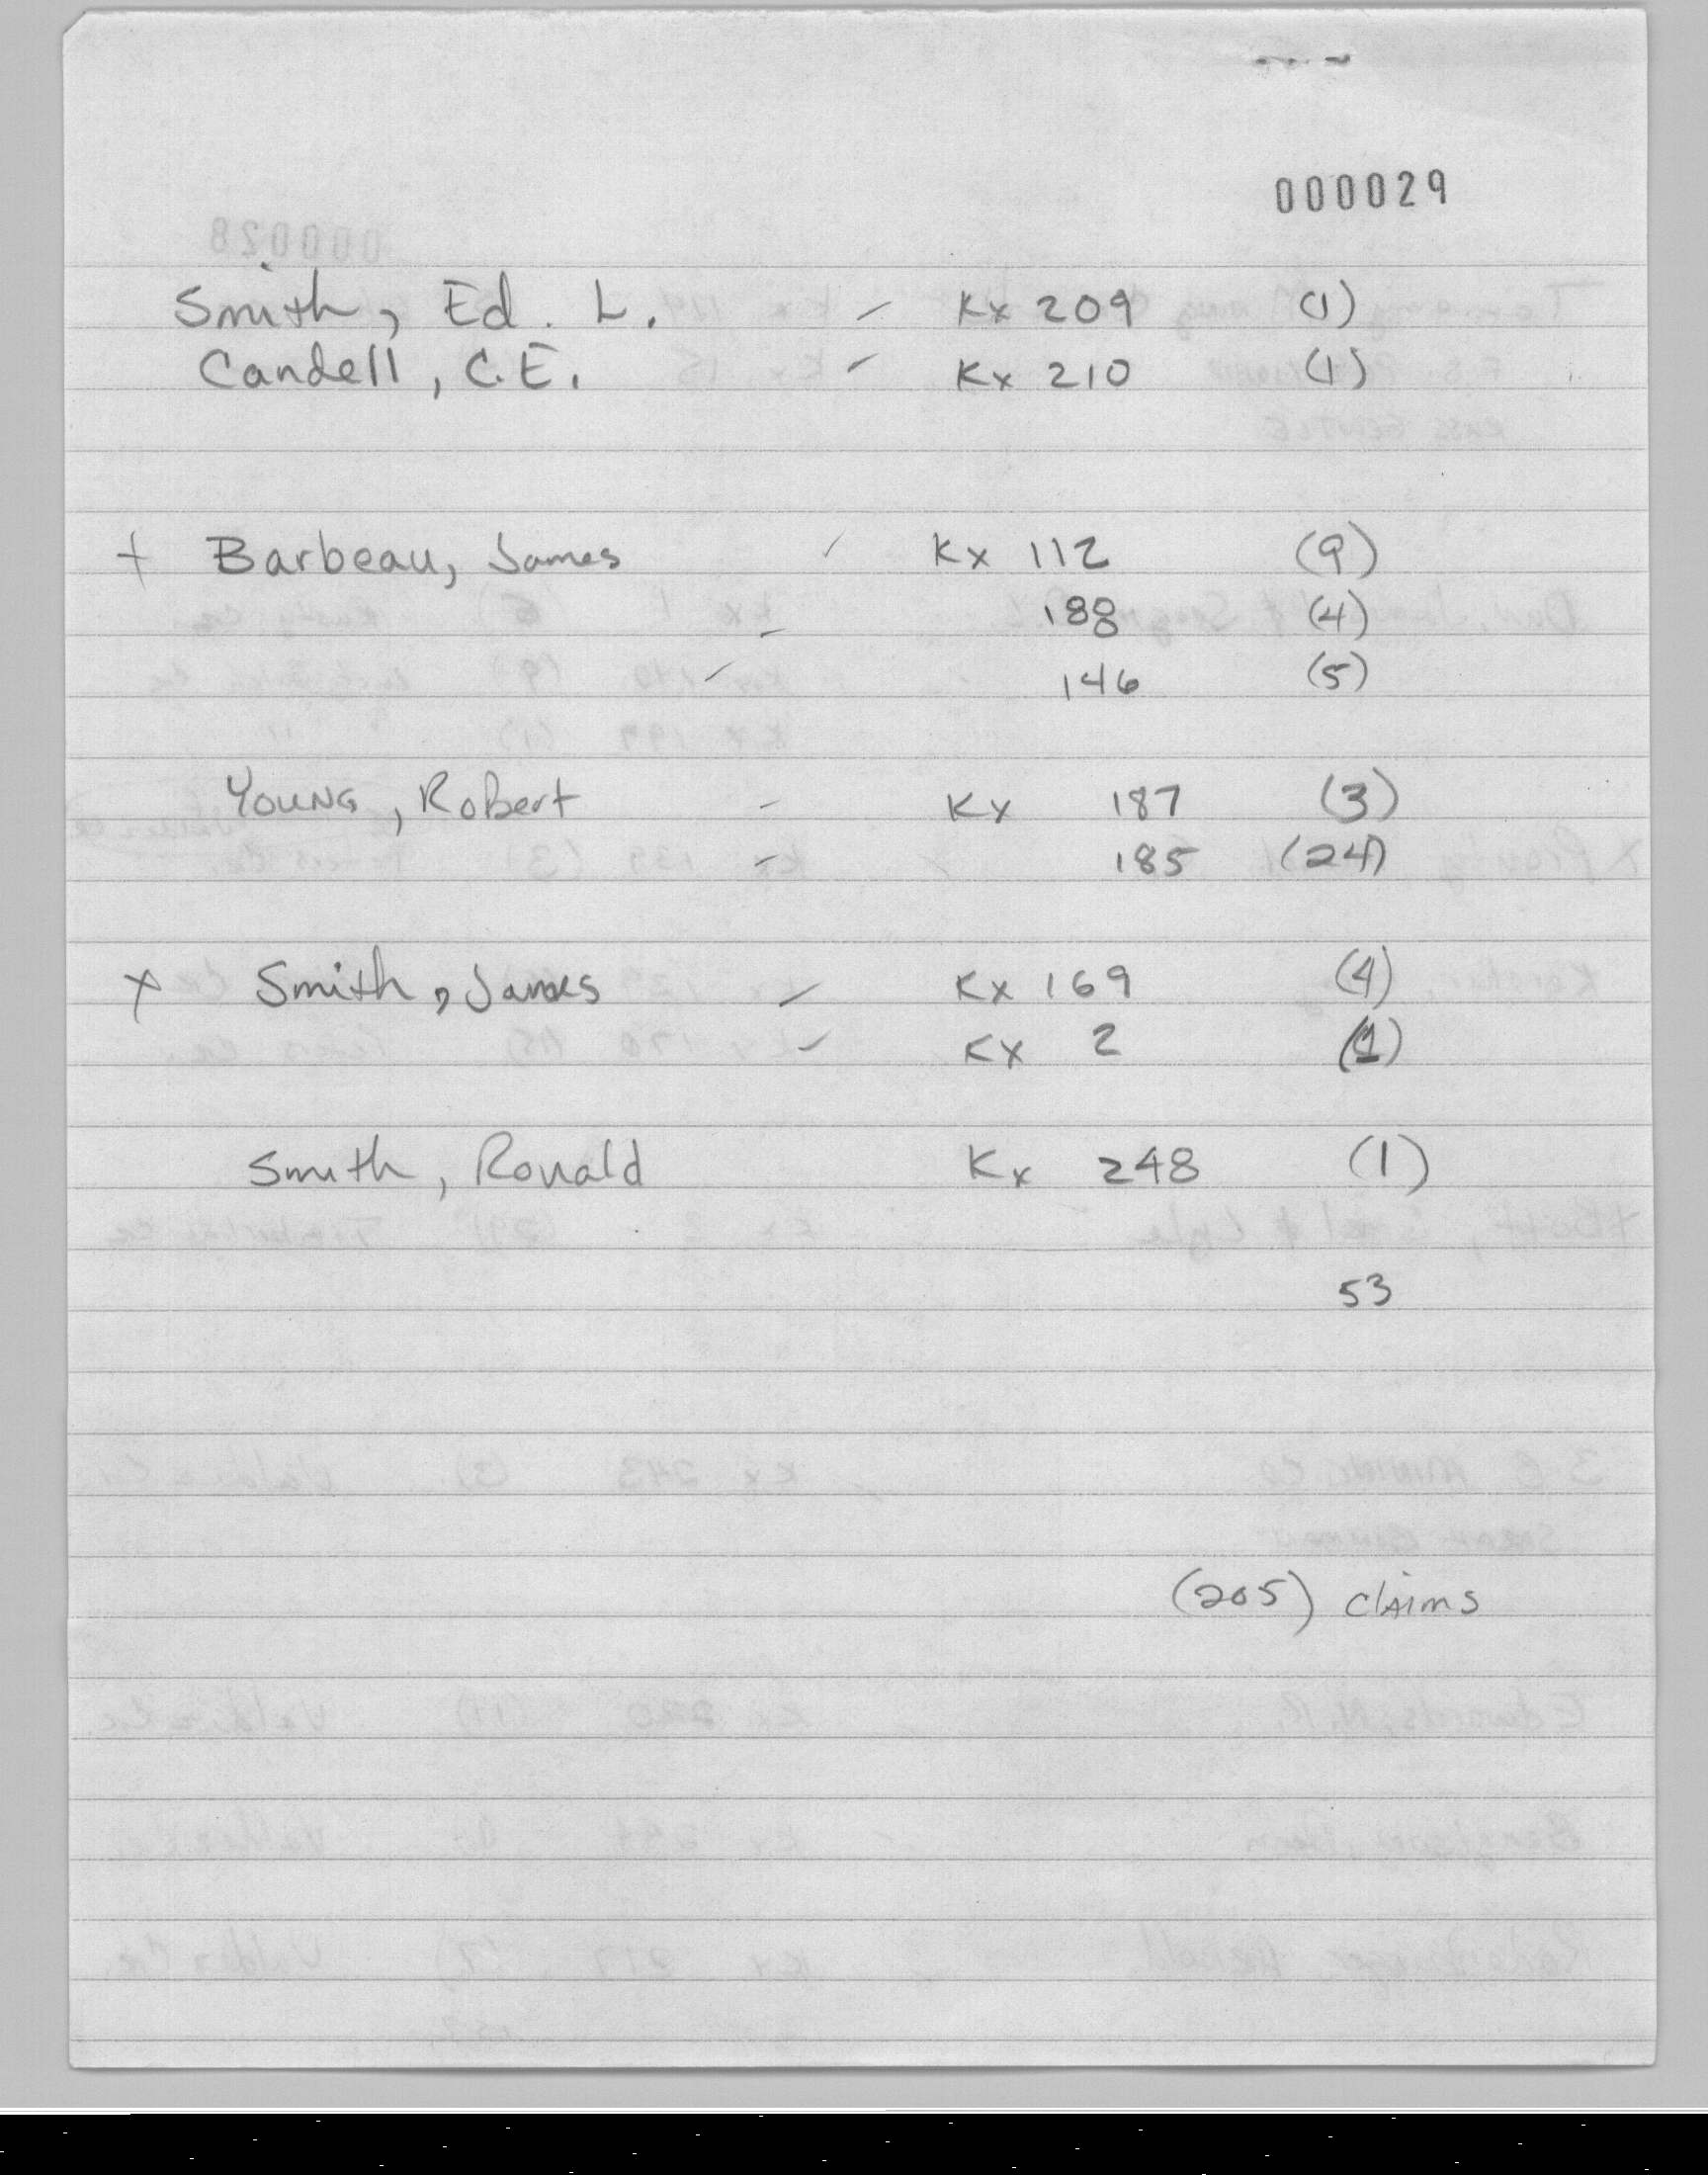 000029
Smith, Ed. L. – Kx 209 (1)
Candell, C.E. – Kx 210 (1)
+ Barbeau, James ✓ Kx 112 (9)
– 188 (4)
– 146 (5)
Young, Robert – Kx 187 (3)
– 185 (24)
x Smith, James – Kx 169 (4)
– Kx 2 (1)
Smith, Ronald Kx 248 (1)
53
(205) claims